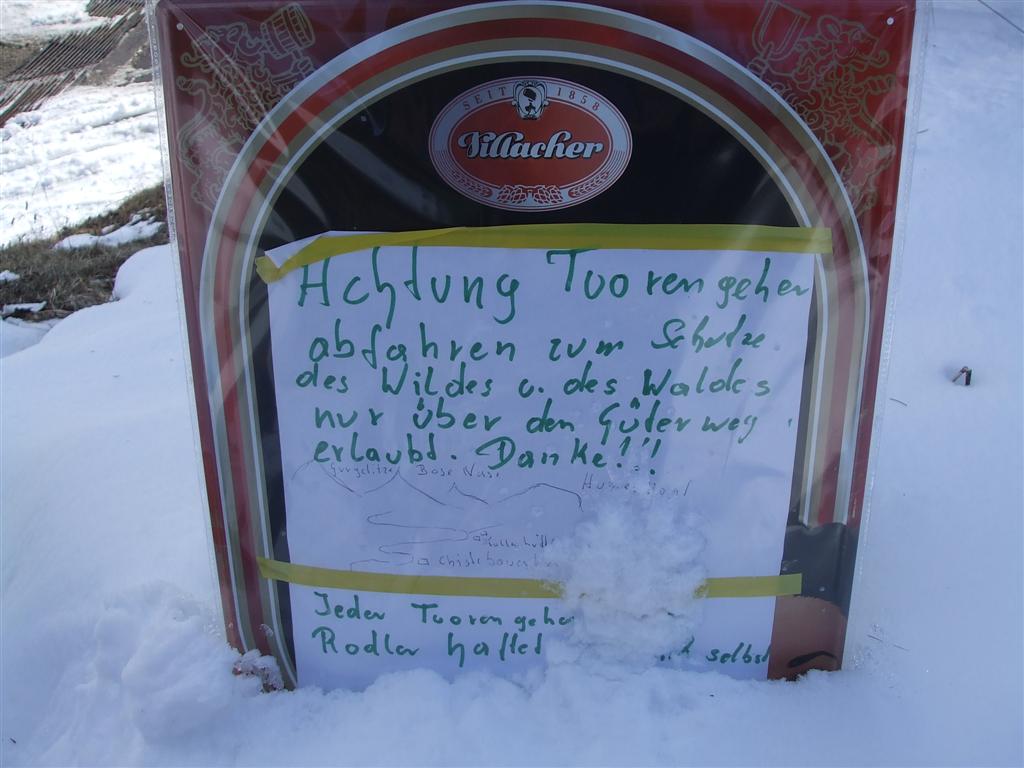 SEIT 1858
Villacher
Achtung Tuorengeher
abfahren zum Schutze
des Wildes u. des Waldes
nur über den Güterweg
erlaubt. Danke!!!
Böse Nase
Jeder Tuorengeher
Rodler haftet selbst